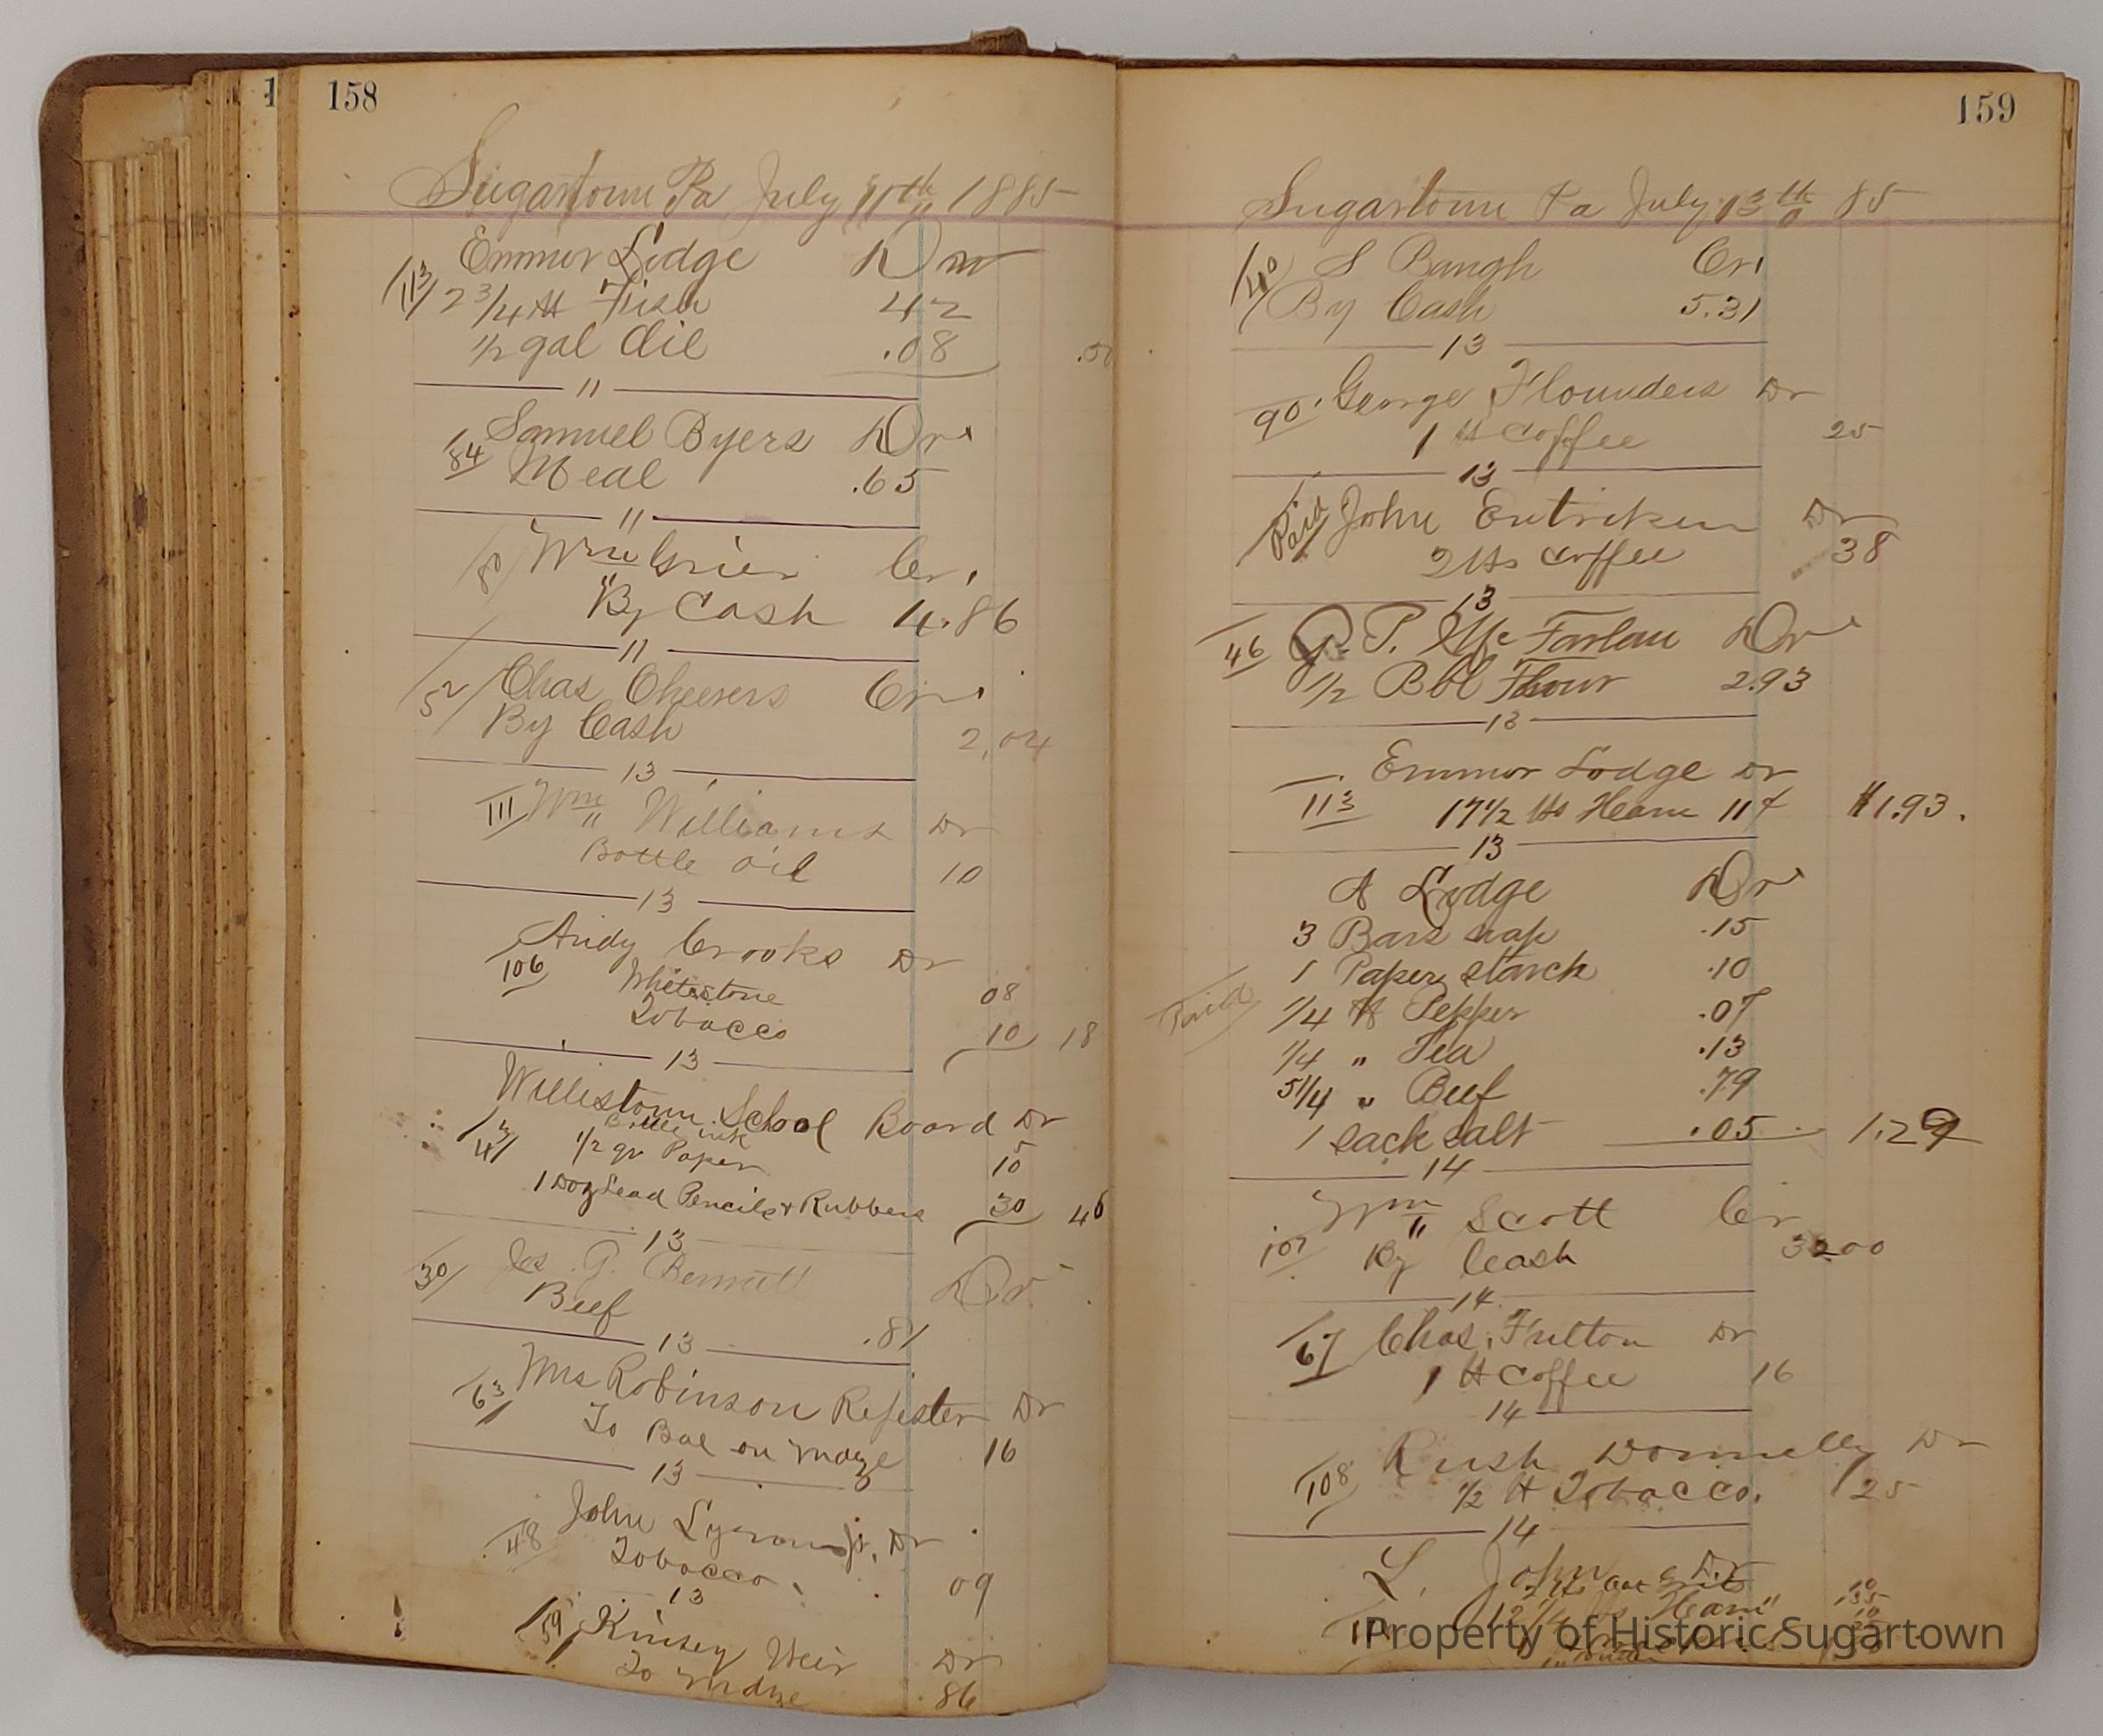 1
158
Sugartown Pa July 11th 1885
Emmor Lodge Dr
113 2 3/4 lb Fish 42
1/2 gal Oil .08 .50
11
Samuel Byers Dr
84 Meal .65
11
80 Wm Grier Cr.
By Cash 4.86
11
52 Chas Cheevers Cr
By Cash 2.04
13
111 Wm Williams Dr
Bottle Oil 10
13
Andy Crooks Dr
106 Whetstone 08
Tobacco 10 18
13
Willistown School Board Dr
Bottle ink 5
1/2 qr Paper 10
1 Doz Lead Pencils & Rubbers 30 45
13
30 Jos. P. Bennett Dr
Beef .81
13
63 Mrs Robinson Register Dr
To Bal on mdze 16
13
John Lyrons Jr. Dr
48 Tobacco 09
13
59 Kinsey Weir Dr
To mdze 86
159
Sugartown Pa July 13th 85
40 S Baugh Cr
By Cash 5.31
13
90 George Flounders Dr
1 lb Coffee 25
13
Paid John Entriken Dr
2 lbs Coffee 38
13
46 G. P. McFarlan Dr
1/2 Bbl Flour 2.93
13
Emmor Lodge Dr
113 17 1/2 lbs Ham 11¢ $1.93.
13
A Lodge Dr
3 Bars soap .15
1 Paper starch .10
Paid 1/4 lb Pepper .07
1/4 " Tea .13
5 1/4 " Beef .79
1 sack salt .05 1.29
14
Wm Scott Cr
107 By Cash 32 00
14
67 Chas. Fulton Dr
1 lb Coffee 16
14
Rush Donnelly Dr
108 1/2 lb Tobacco. 25
14
L. John Dr
12 1/4 lbs Ham 1.35
Property of Historic Sugartown